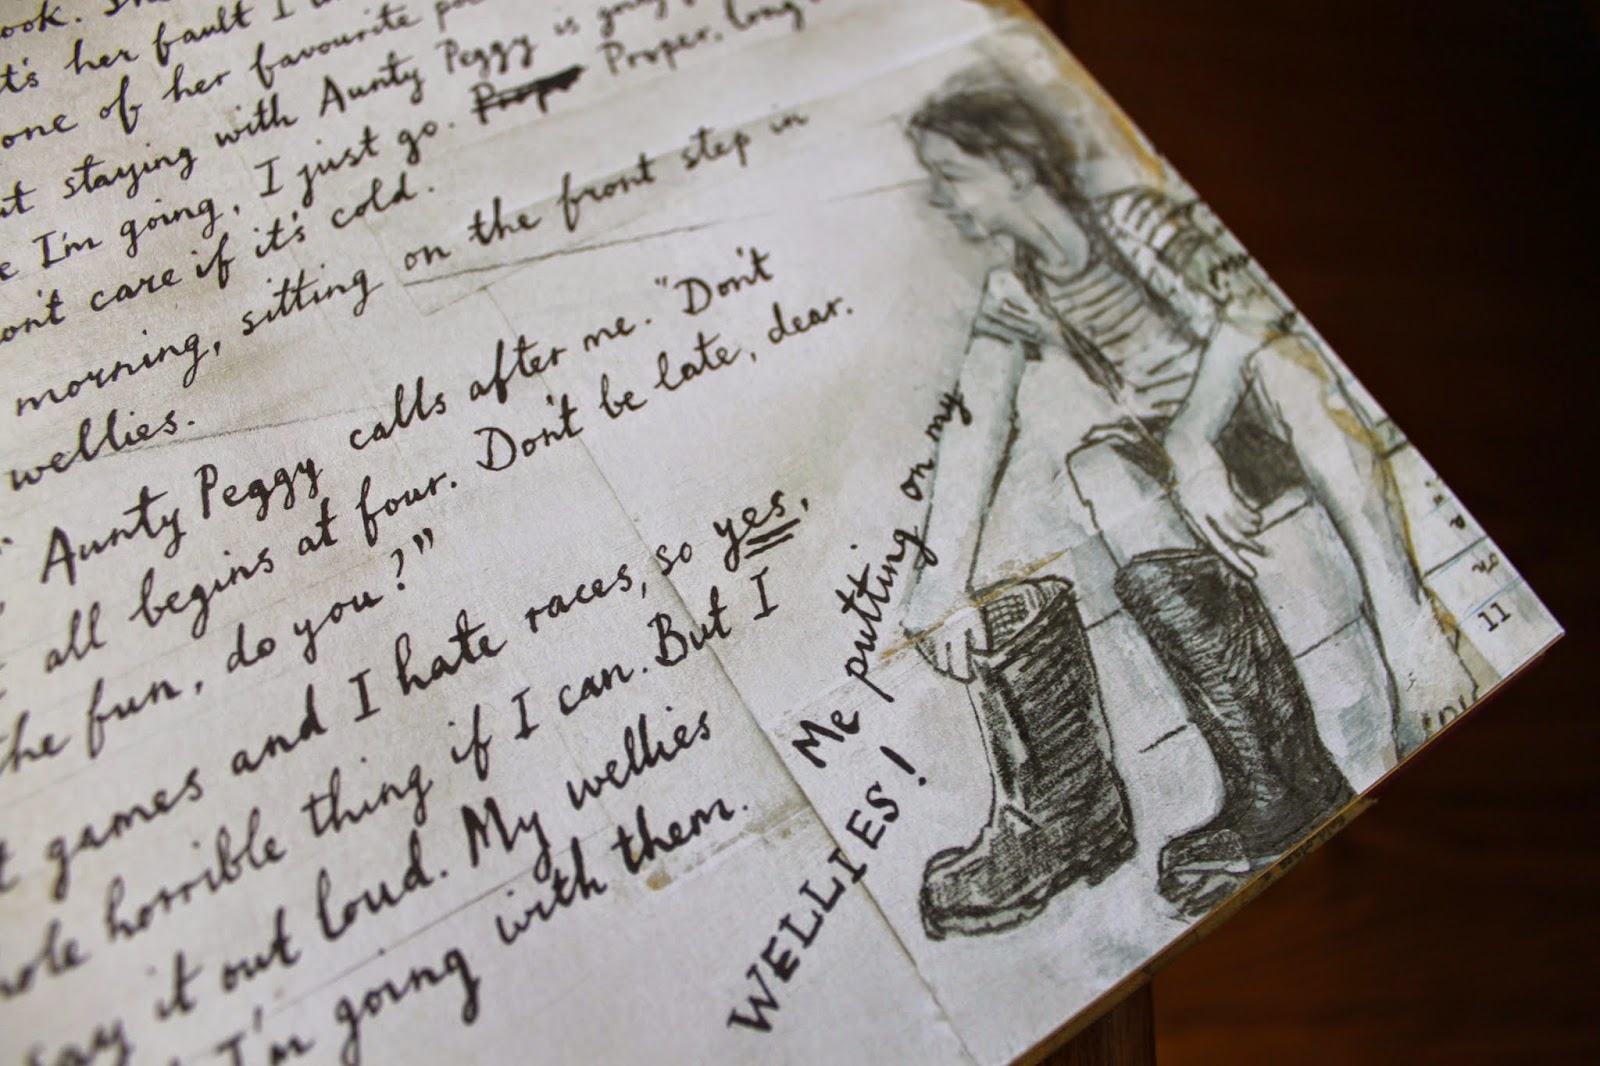 ook. She
t's her fault I
one of her favourite
ut staying with Aunty Peggy is
e I'm going, I just go. Prope Proper, long
on't care if it's cold.
morning, sitting on the front step in
wellies.
Aunty Peggy calls after me. "Don't
all begins at four. Don't be late, dear.
the fun, do you?"
t games and I hate races, so yes,
hole horrible thing if I can. But I
say it out loud. My wellies
I'm going with them.
Me putting on my
WELLIES!
11